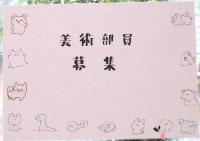 美術部員
募集